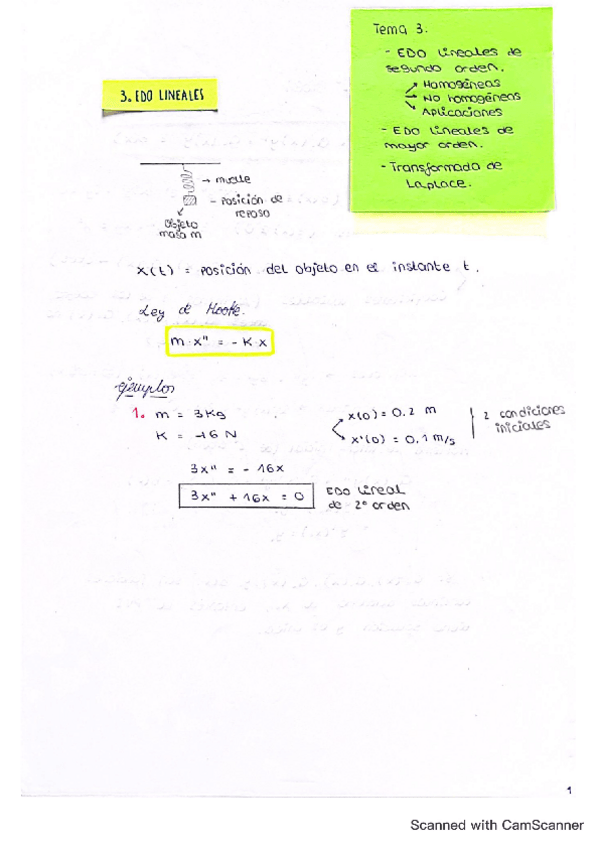 Tema 3.
- EDO lineales de
segundo orden.
Homogéneas
No homogéneas
Aplicaciones
- EDO lineales de
mayor orden.
- Transformada de
Laplace.
3. EDO LINEALES
→ muelle
- Posición de
reposo
Objeto
masa m
x(t) = Posición del objeto en el instante t.
Ley de Hooke.
m·x'' = -K·x
Ejemplos
1. m = 3Kg
K = 16 N
x(0) = 0.2 m
x'(0) = 0.1 m/s
2 condiciones
iniciales
3x'' = - 16x
3x'' + 16x = 0
EDO lineal
de 2º orden
1
Scanned with CamScanner